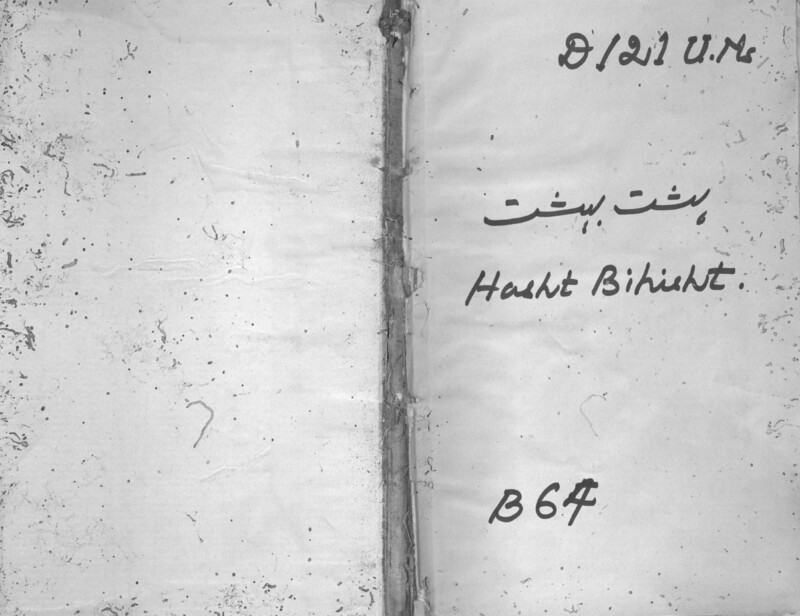 D 121 U.Ms
ہشت بہشت
Hasht Bihisht.
B 64